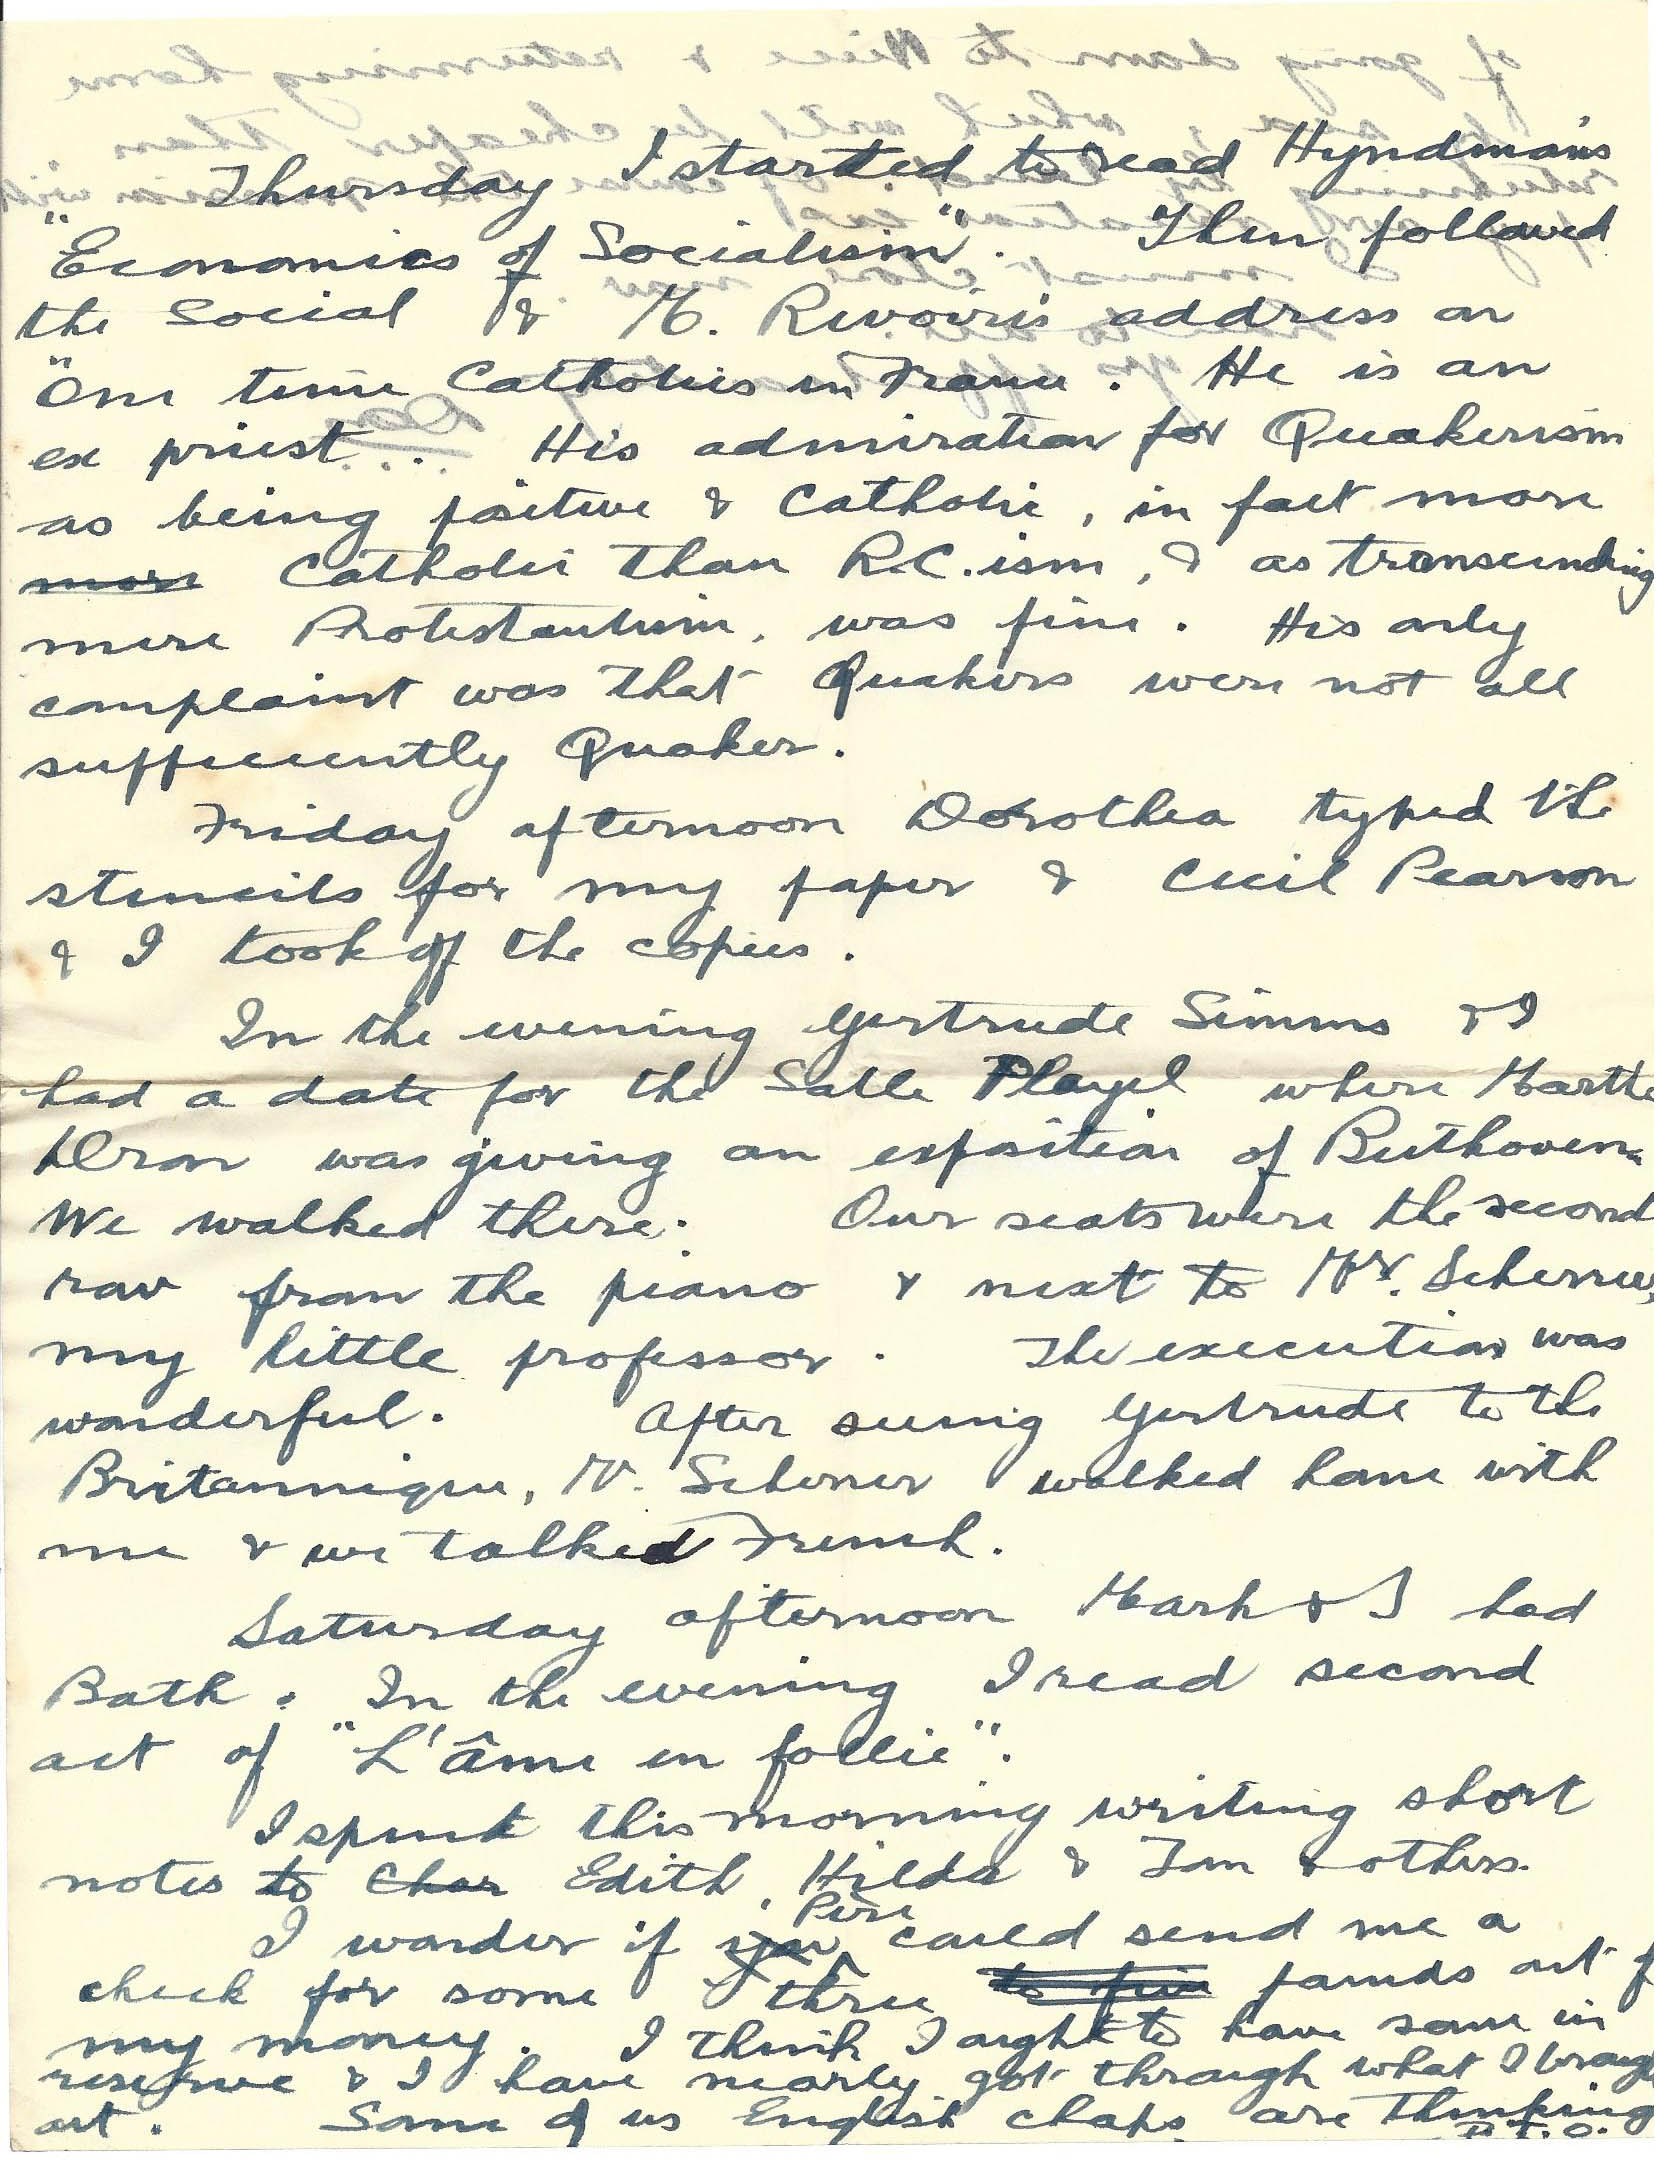 Thursday I started to read Hyndman's
"Economics of Socialism". Then followed
the Social & M. Revoire's address on
"One time Catholics in France. He is an
ex priest... His admiration for Quakerism
as being positive & Catholic, in fact more
more Catholic than R.C.ism, & as transcending
mere Protestantism, was fine. His only
complaint was that Quakers were not all
sufficiently Quaker.
Friday afternoon Dorothea typed the
stencils for my paper & Cecil Pearson
& I took off the copies.
In the evening Gertrude Simms & I
had a date for the Salle Pleyel where Marthe
Dron was giving an exposition of Beethoven.
We walked there. Our seats were the second
row from the piano & next to Mr. Scherrer,
my little professor. The execution was
wonderful. After seeing Gertrude to the
Britannique, M. Scherrer walked home with
me & we talked French.
Saturday afternoon Mark & I had
Bath. In the evening I read second
act of "L'âme en follie".
I spent this morning writing short
notes to Char Edith, Hilda & Tom & others.
I wonder if you Père could send me a
check for some three to five pounds out of
my money. I think I ought to have some in
reserve & I have nearly got through what I brought
out. Some of us English chaps are thinking
P.T.O.
of going down to Nice & returning home
by sea, which will be cheaper than